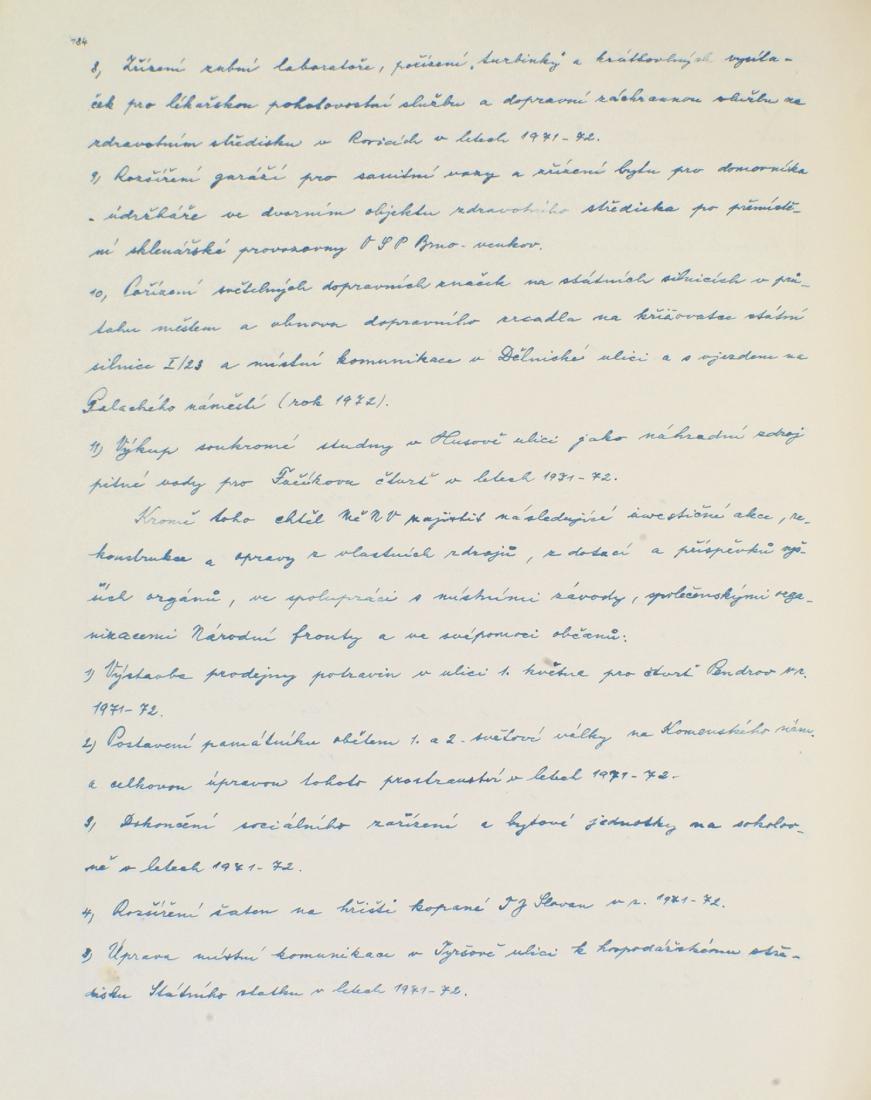 184
8, Zřízení zubní laboratoře, pořízení „turbinky" a krátkovlných vysíla-
ček pro lékařskou pohotovostní službu a dopravní záchrannou službu na
zdravotním středisku v Rosicích v letech 1971-72.
9, Rozšíření garáží pro sanitní vozy a zřízení bytu pro domovníka
- údržbáře ve dvorním objektu zdravotního střediska po přemístě-
ní sklenářské provozovny OSP Brno-venkov.
10, Pořízení světelných dopravních značek na státních silnicích v prů-
tahu městem a obnova dopravního zrcadla na křižovatce státní
silnice I/23 a místní komunikace v Dělnické ulici a s vjezdem na
Palackého náměstí (rok 1972).
11) Výkup soukromé studny v Husově ulici jako náhradní zdroj
pitné vody pro Fučíkovu čtvrť v letech 1971-72.
Kromě toho chtěl MěNV zajistit následující investiční akce, re-
konstrukce a opravy z vlastních zdrojů, z dotací a příspěvků vyš-
ších orgánů, ve spolupráci s místními závody, společenskými orga-
nizacemi Národní fronty a ve svépomoci občanů:
1) Výstavba prodejny potravin v ulici 1. května pro čtvrť Pendrov v r.
1971-72.
2) Postavení památníku obětem 1. a 2. světové války na Komenského nám.
a celkovou úpravou tohoto prostranství v letech 1971-72.
3) Dokončení sociálního zařízení a bytové jednotky na sokolov-
ně v letech 1971-72.
4, Rozšíření šaten na hřišti kopané TJ Slovan v r. 1971-72.
5) Úprava místní komunikace v Tyršově ulici k hospodářskému stře-
disku Státního statku v letech 1971-72.